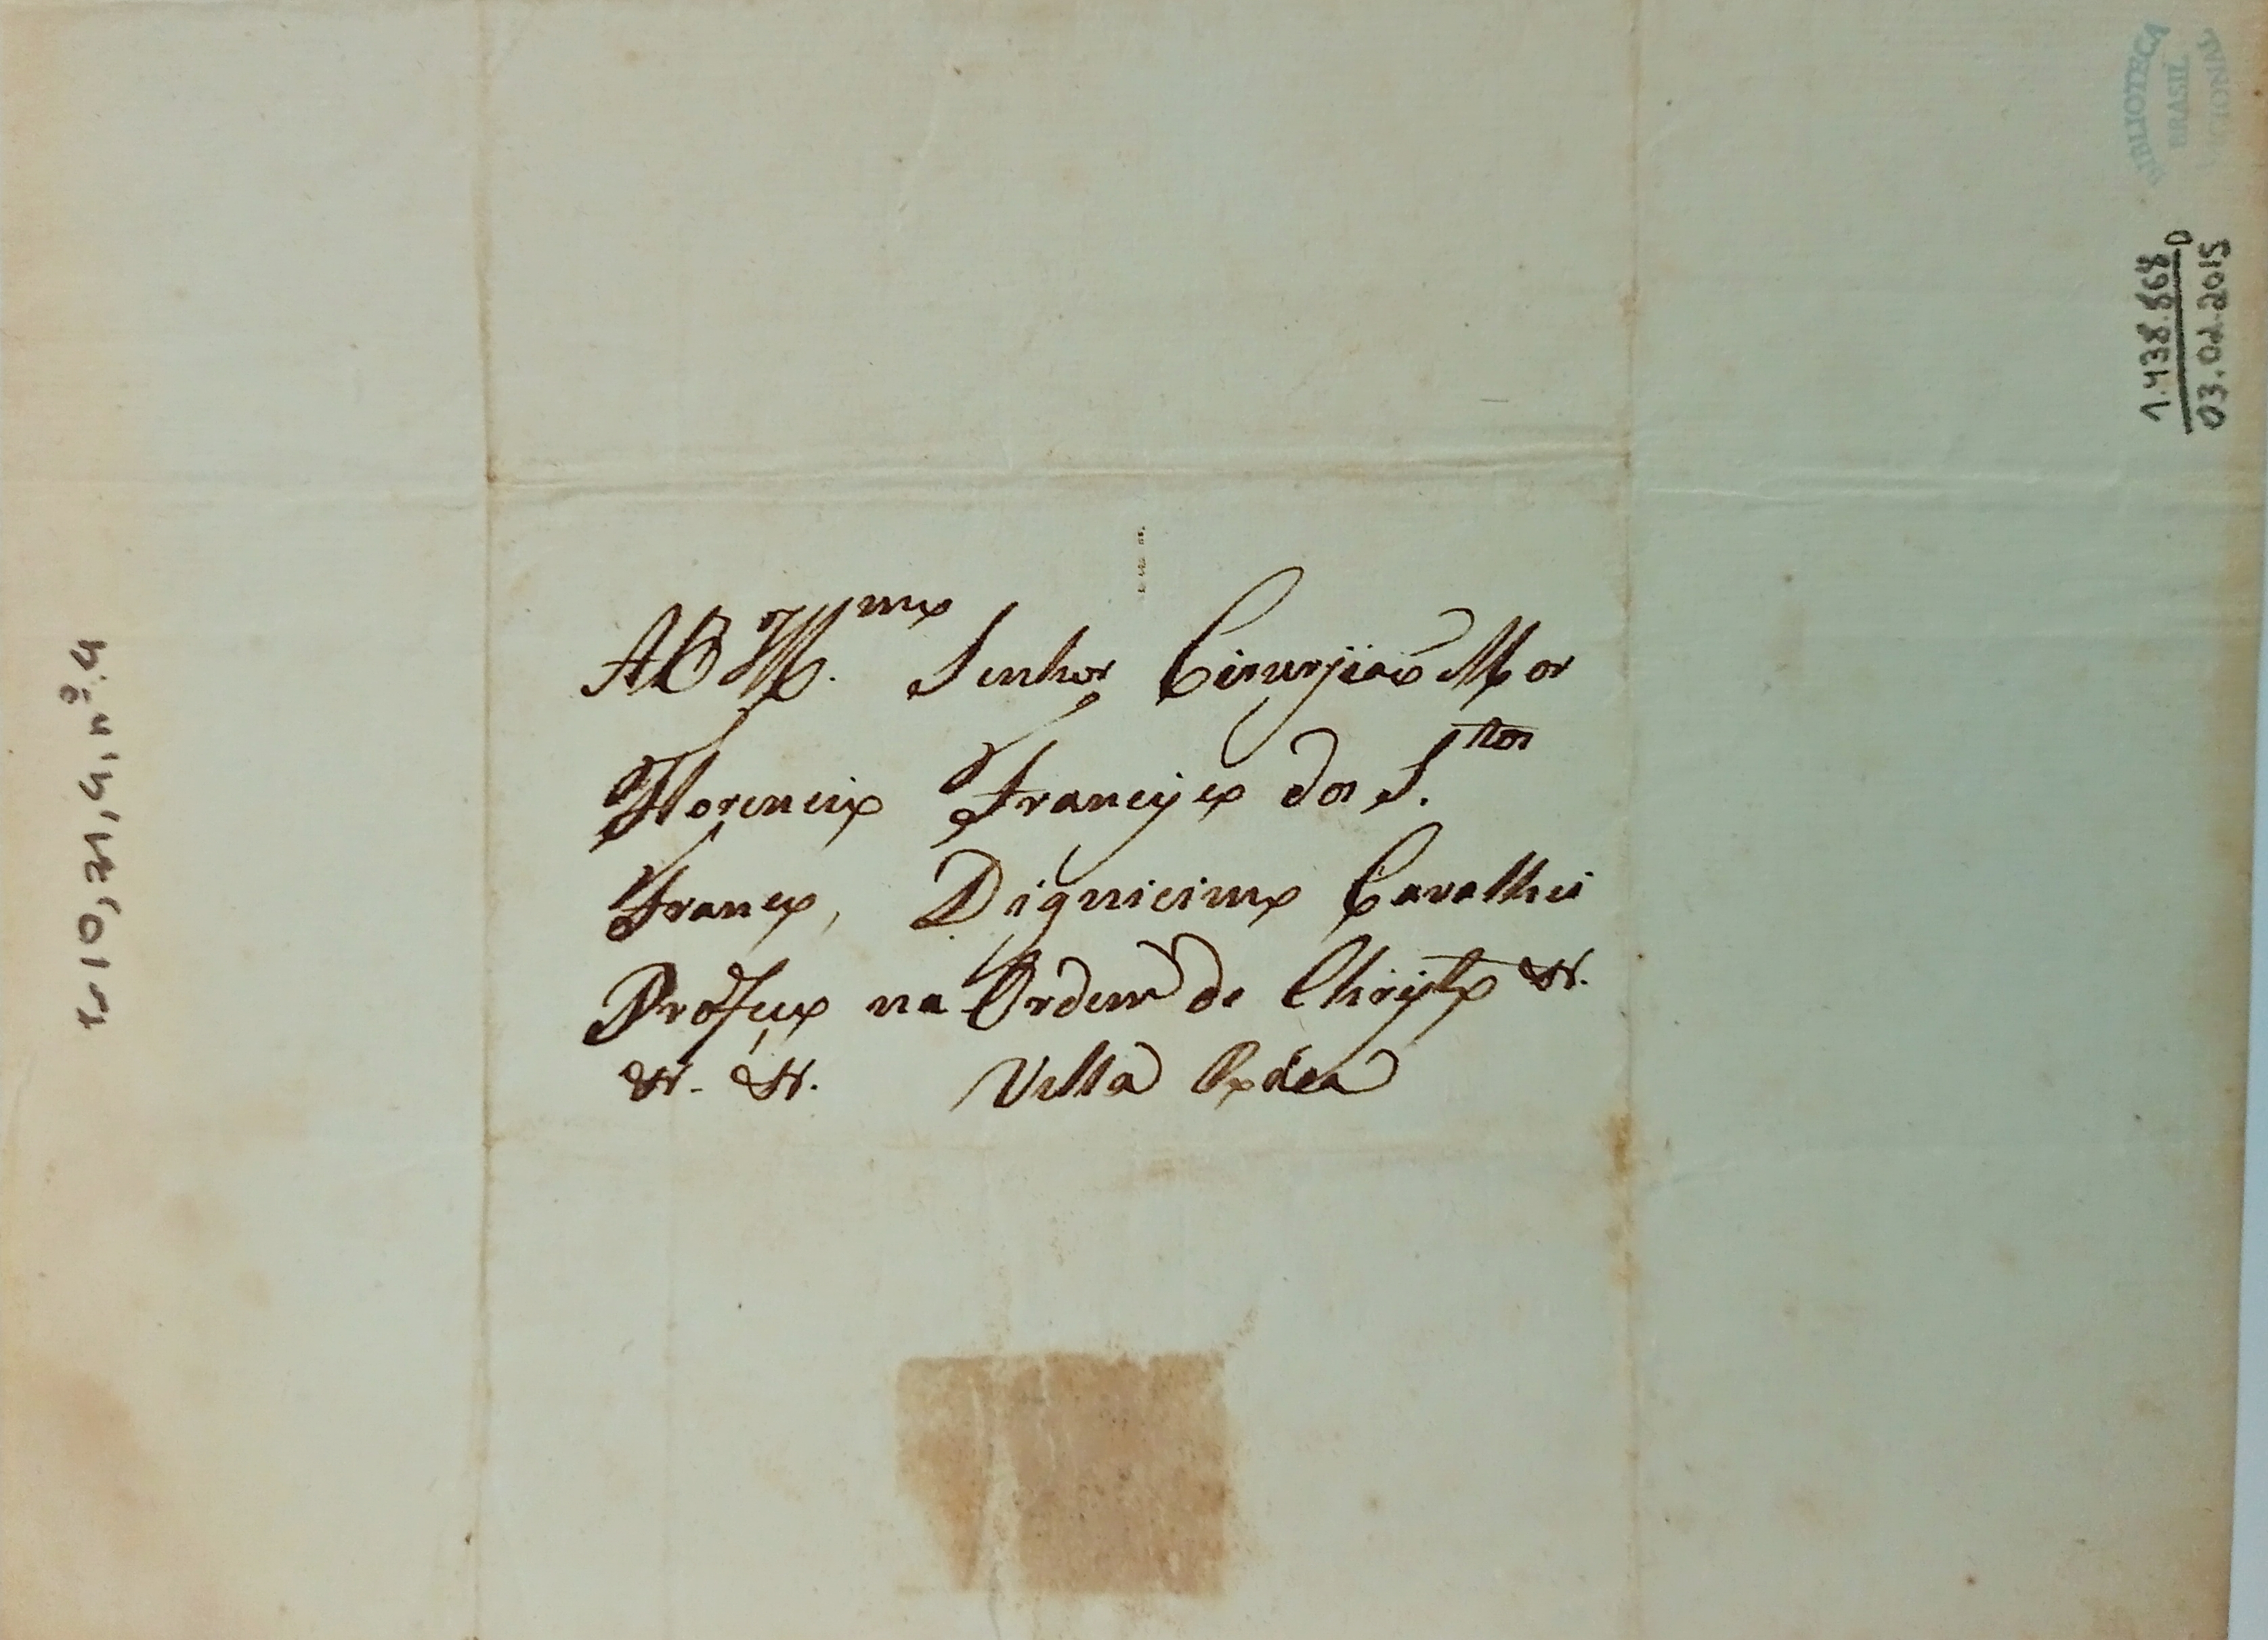 AO Ill.mo Senhor Cirurjiaõ Mor
Florencio Francisco dos S.tos
Franco, Dignicimo Cavalhei
Profeço na Ordem de Christo &.
&. &. Villa Rica
BIBLIOTECA
BRASIL
NACIONAL
1.438.868 D
03.02.2015
I-10,21,4,nº.4